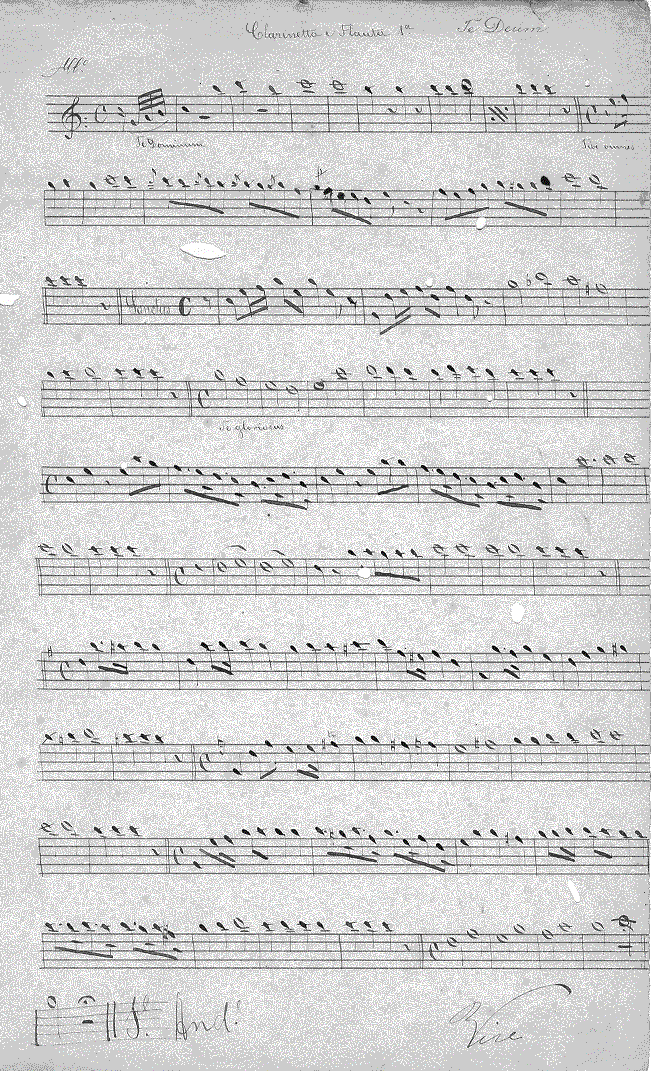 Clarinetta e Flauta 1ª Te Deum
Allº
Te Dominum
Tibi omnes
Sanctus
Te gloriosus
S. Andᵉ
Vire